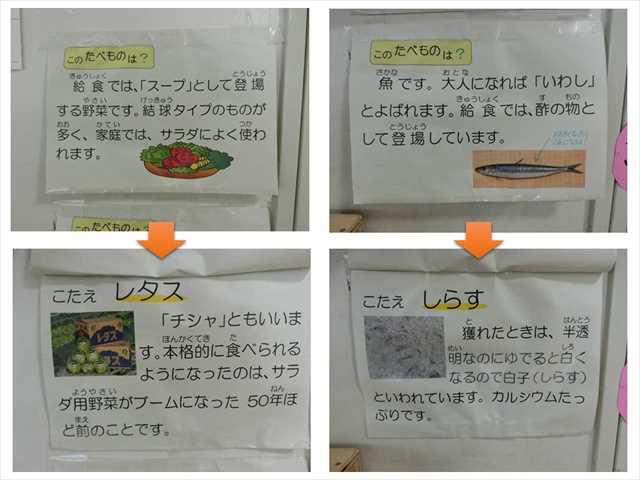 このたべものは？
給食では、「スープ」として登場
する野菜です。結球タイプのものが
多く、家庭では、サラダによく使わ
れます。
このたべものは？
こたえ レタス
「チシャ」ともいいま
す。本格的に食べられる
ようになったのは、サラ
ダ用野菜がブームになった 50年ほ
ど前のことです。
このたべものは？
魚です。大人になれば「いわし」
とよばれます。給食では、酢の物と
して登場しています。
こたえ しらす
獲れたときは、半透
明なのにゆでると白く
なるので白子(しらす)
といわれています。カルシウムたっ
ぷりです。
レタス